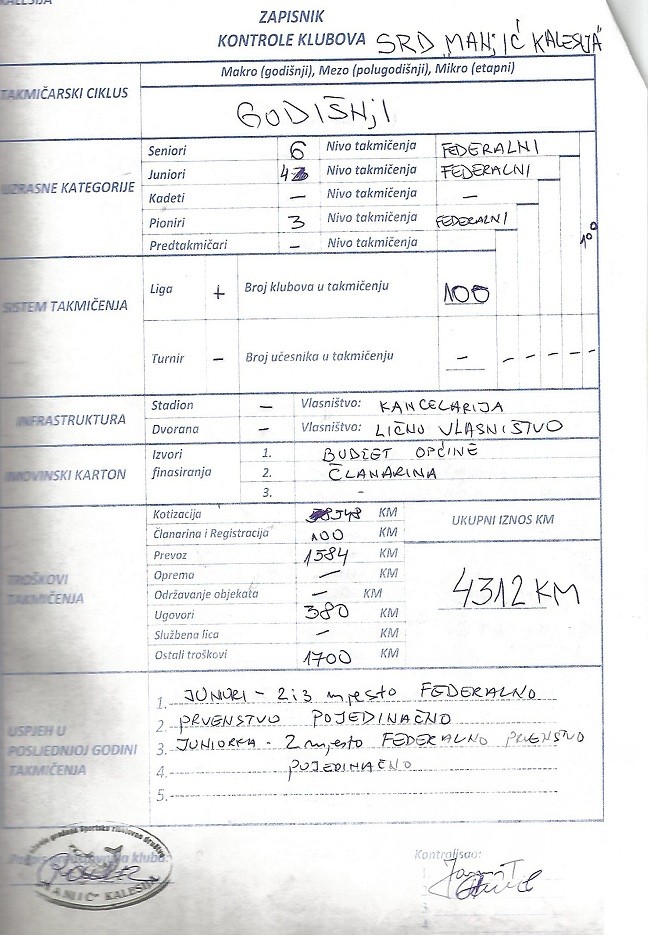 KALESIJA
ZAPISNIK
KONTROLE KLUBOVA SRD MANJIĆ KALESIJA
TAKMIČARSKI CIKLUS
Makro (godišnji), Mezo (polugodišnji), Mikro (etapni)
GODIŠNJI
UZRASNE KATEGORIJE
Seniori 6 Nivo takmičenja FEDERALNI
Juniori 4 Nivo takmičenja FEDERALNI
Kadeti – Nivo takmičenja –
Pioniri 3 Nivo takmičenja FEDERALNI
Predtakmičari – Nivo takmičenja
100
SISTEM TAKMIČENJA
Liga + Broj klubova u takmičenju 100
Turnir – Broj učesnika u takmičenju – – – – – –
INFRASTRUKTURA
Stadion – Vlasništvo: KANCELARIJA
Dvorana – Vlasništvo: LIČNO VLASNIŠTVO
IMOVINSKI KARTON
Izvori finasiranja
1. BUDŽET OPĆINE
2. ČLANARINA
3. -
TROŠKOVI TAKMIČENJA
Kotizacija 548 KM
Članarina i Registracija 100 KM
Prevoz 1584 KM
Oprema – KM
Održavanje objekata – KM
Ugovori 380 KM
Službena lica – KM
Ostali troškovi 1700 KM
UKUPNI IZNOS KM
4312 KM
USPJEH U
POSLJEDNJOJ GODINI
TAKMIČENJA
1. JUNIORI - 2 i 3 mjesto FEDERALNO
2. PRVENSTVO POJEDINAČNO
3. JUNIORKA - 2 mjesto FEDERALNO PRVENSTVO
4. POJEDINAČNO
5.
kluba:
Sportsko ribolovno društvo
"MANJIĆ" KALESIJA
Kontrolisao: